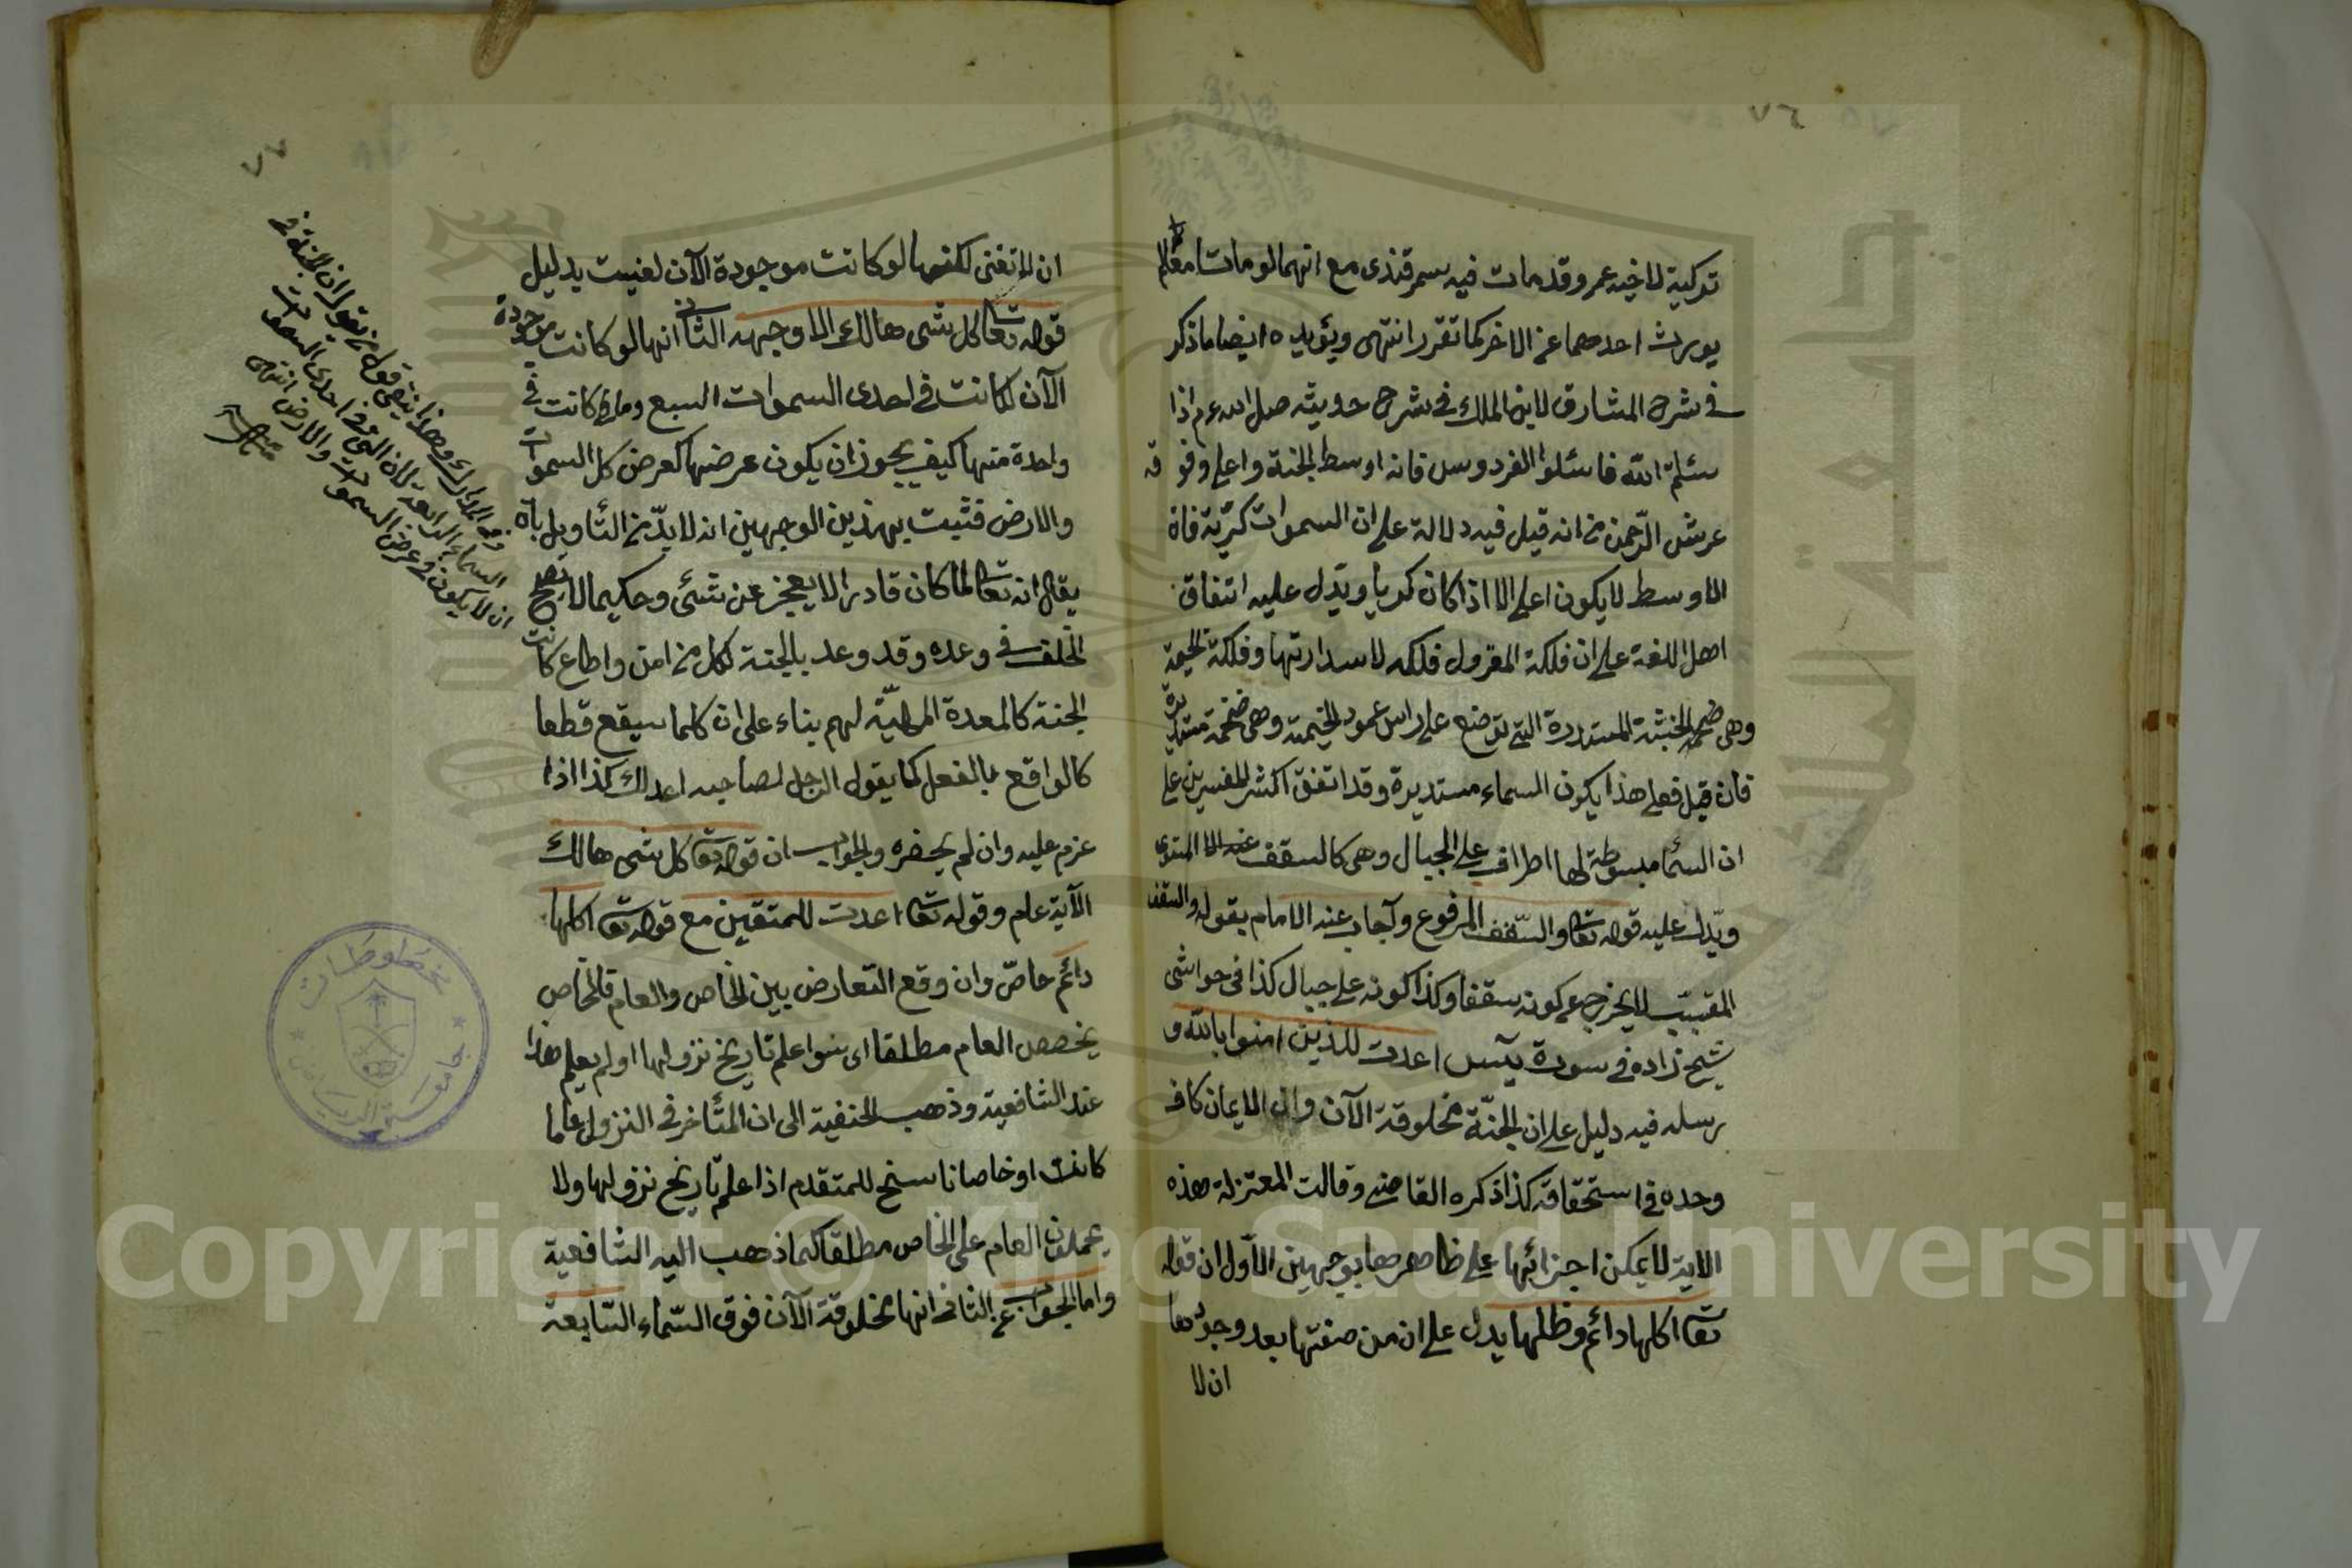 ٧٦
تركية لاخيه عمر وقد مات فيه سمرقندى مع انهما لو ماتا معا لم
يورث احدهما عن الاخر كما تقرر انتهى ويؤيده ايضا ما ذكر
فى شرح المشارق لابن الملك فى شرح حديثه صلى الله عم اذا
سئلتم الله فاسئلوا الفردوس فانه اوسط الجنة واعلى وفوقه
عرش الرّحمن من انه قيل فيه دلالة على ان السموات كرّية فان
الاوسط لا يكون اعلى الا اذا كان كريا ويدل عليه اتفاق
اهل اللغة على ان فلكة المغزول فلكه لاسدارتها وفلكة الخيمة
وهى الخشبة المستديرة التى توضع على راس عمود الخيمة وهى ضخمة مستديرة
فان قيل فعلى هذا يكون السماء مستديرة وقد اتفق اكثر المفسرين على
ان السماء مبسوطة لها اطراف على الجبال وهى كالسقف المستوى
ويدل عليه قوله تعا والسّقف المرفوع واجاب عنه الامام بقوله والسقف
المقبّب لا يخرج عن كونه سقفا وكذا كونه على جبال كذا فى حواشى
شيخ زاده فى سورة يس اعدت للذين امنوا بالله و
رسله فيه دليل على ان الجنّة مخلوقة الآن وان الايمان كاف
وحده فى استحقاقه كذا ذكره القاضى وقالت المعتزلة هذه
الاية لا يمكن اجزائها على ظاهرها بوجهين الاوّل ان قوله
تعا اكلها دائم وظلها يدل على ان من صفتها بعد وجودها
ان لا
٧٧
ان لا تفنى لكنها لو كانت موجودة الآن لفنيت بدليل
قوله تعا كل شى هالك الا وجهه الثانى انها لو كانت موجودة
الآن لكانت فى احدى السموات السبع وما كانت فى
واحدة منها كيف يجوز ان يكون عرضها كعرض كل السموات
والارض فثبت بهذين الوجهين انه لا بدّ من التأويل بان
يقال انه تعا لما كان قادرا لا يعجز عن شئ وحكيما لا يصح
الخلف فى وعده وقد وعد بالجنة لكل من امن واطاع كانت
الجنة كالمعدة المهيّة لهم بناء على ان كلما سيقع قطعا
كالواقع بالفعل كما يقول الرجل لصاحبه اعد لك كذا اذا
عزم عليه وان لم يحضره والجواب ان قوله تعا كل شى هالك
الآية عام وقوله تعا اعدت للمتقين مع قوله تعا اكلها
دائم خاصّ وان وقع التعارض بين الخاص والعام فالخاص
يخصص العام مطلقا اى سوا علم تاريخ نزولها او لم يعلم هذا
عند الشافعية وذهب الحنفية الى ان المتأخر فى النزول عاما
كانت او خاصا ناسخ للمتقدم اذا علم تاريخ نزولها ولا
يحملون العام على الخاص مطلقا كما ذهب اليه الشافعية
واما الجواب عن الثانى انها مخلوقة الآن فوق السّماء السّابعة
وهذا ينفى قول من يقول ان الجنة فى
السماء الرابعة لان التى فى احدى السموات
ان لا يكون فى عرض السموات والارض انتهى
مخطوطات
جامعة الرياض
جامعة الملك
Copyright © King Saud University